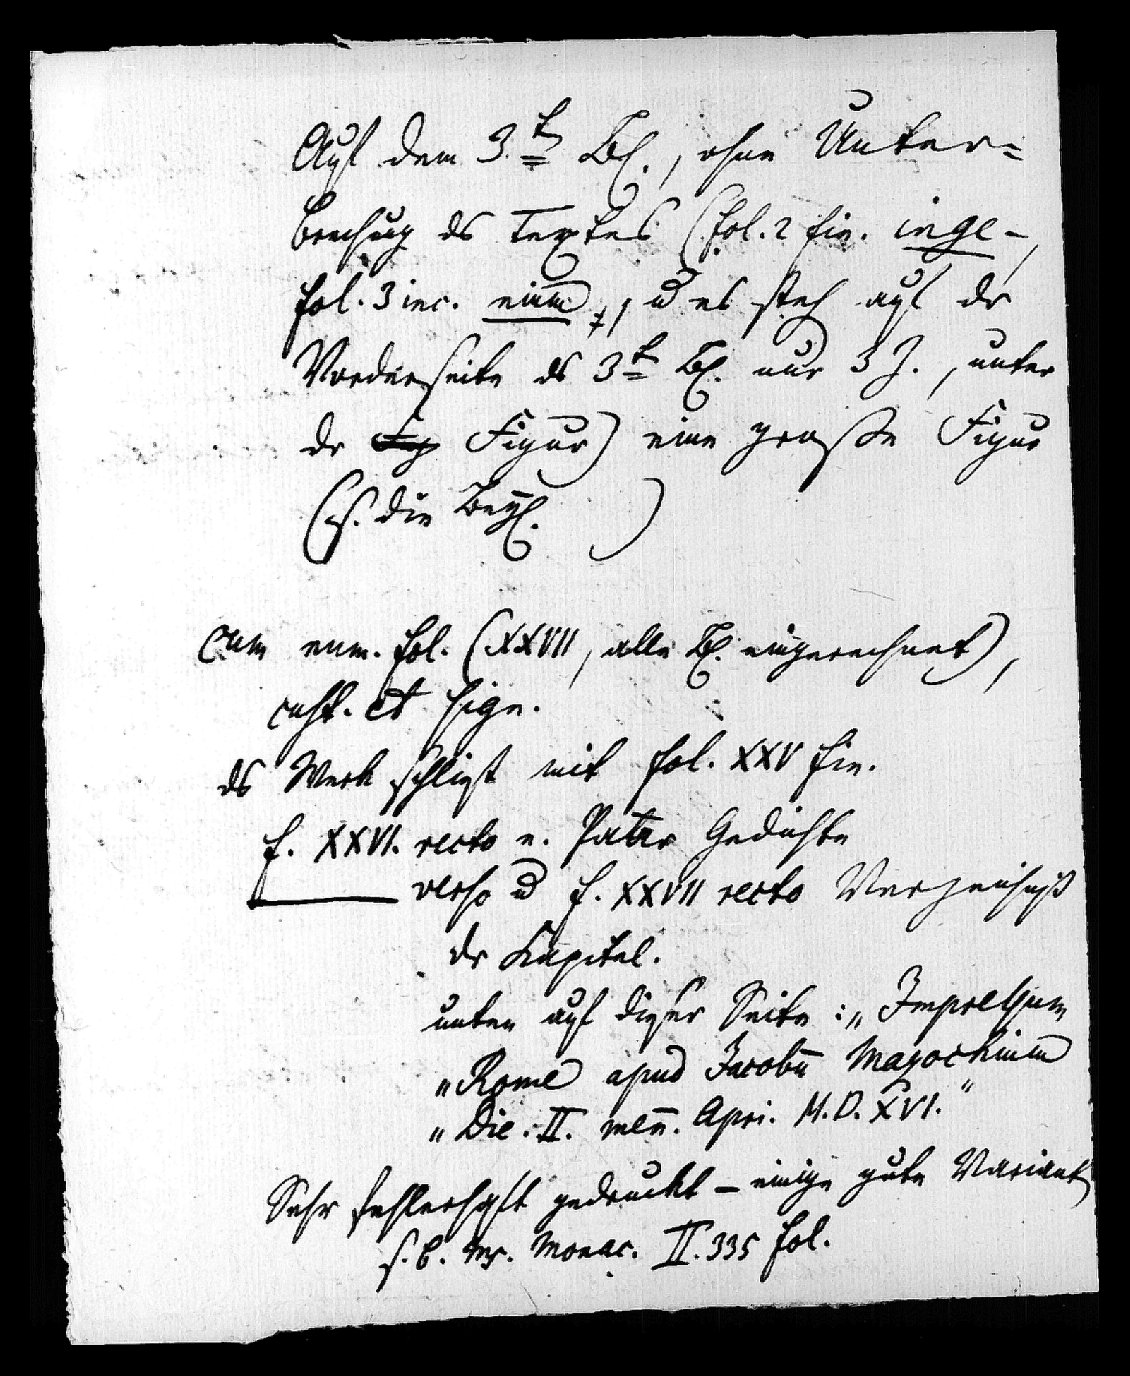 Auf dem 3.t Bl., ohne Unter=
brechug ds Textes (fol. 2 fin. inge-,
fol. 3 inc. nium, u es steh auf dr
Vorderseite ds 3t Bl. nur 3 Z., unter
dr Figur) eine große Figur
(s. die Beyl. )
cum num. fol. (XXVII, alle Bl. eingerechnet),
cust. et sign.
ds Werk schließt mit fol. XXV fin.
f. XXVI. recto Gedichte
verso u f. XXVII recto Verzeichniß
dr Kapitel.
unten auf dieser Seite: „Impressum
„Rome apud Jacobū Mazochium
„Die. II. men̄. Apri. M.D. XVI.“
Sehr fehlerhaft gedruckt – einige gute Variant
s. b. Ms. Monac. II. 335 fol.